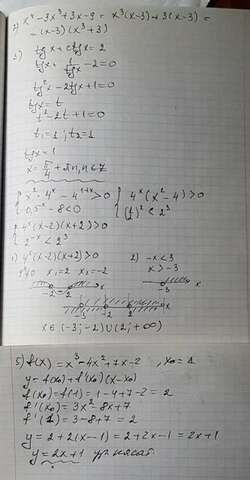 2) x⁴-3x³+3x-9 = x³(x-3)+3(x-3) =
= (x-3)(x³+3)
3)
tgx + ctgx = 2
tgx + 1/tgx - 2 = 0
tg²x - 2tgx + 1 = 0
tgx = t
t² - 2t + 1 = 0
t₁ = 1 ; t₂ = 1
tgx = 1
x = π/4 + πn, n∈Z
{ x²·4ˣ - 4^(1+x) > 0 { 4ˣ(x²-4) > 0
0,5ˣ - 8 < 0 (1/2)ˣ < 2³
{ 4ˣ(x-2)(x+2) > 0
2⁻ˣ < 2³
1) 4ˣ(x-2)(x+2) > 0 2) -x < 3
4ˣ≠0 x₁=2 x₂=-2 x > -3
-2 2 x -3 x
-3 -2 2 x
x∈(-3;-2)∪(2;+∞)
5) f(x) = x³-4x²+7x-2 , x₀=1
y = f(x₀) + f'(x₀)(x-x₀)
f(x₀) = f(1) = 1-4+7-2 = 2
f'(x₀) = 3x²-8x+7
f'(1) = 3-8+7 = 2
y = 2+2(x-1) = 2+2x-1 = 2x+1
y = 2x+1